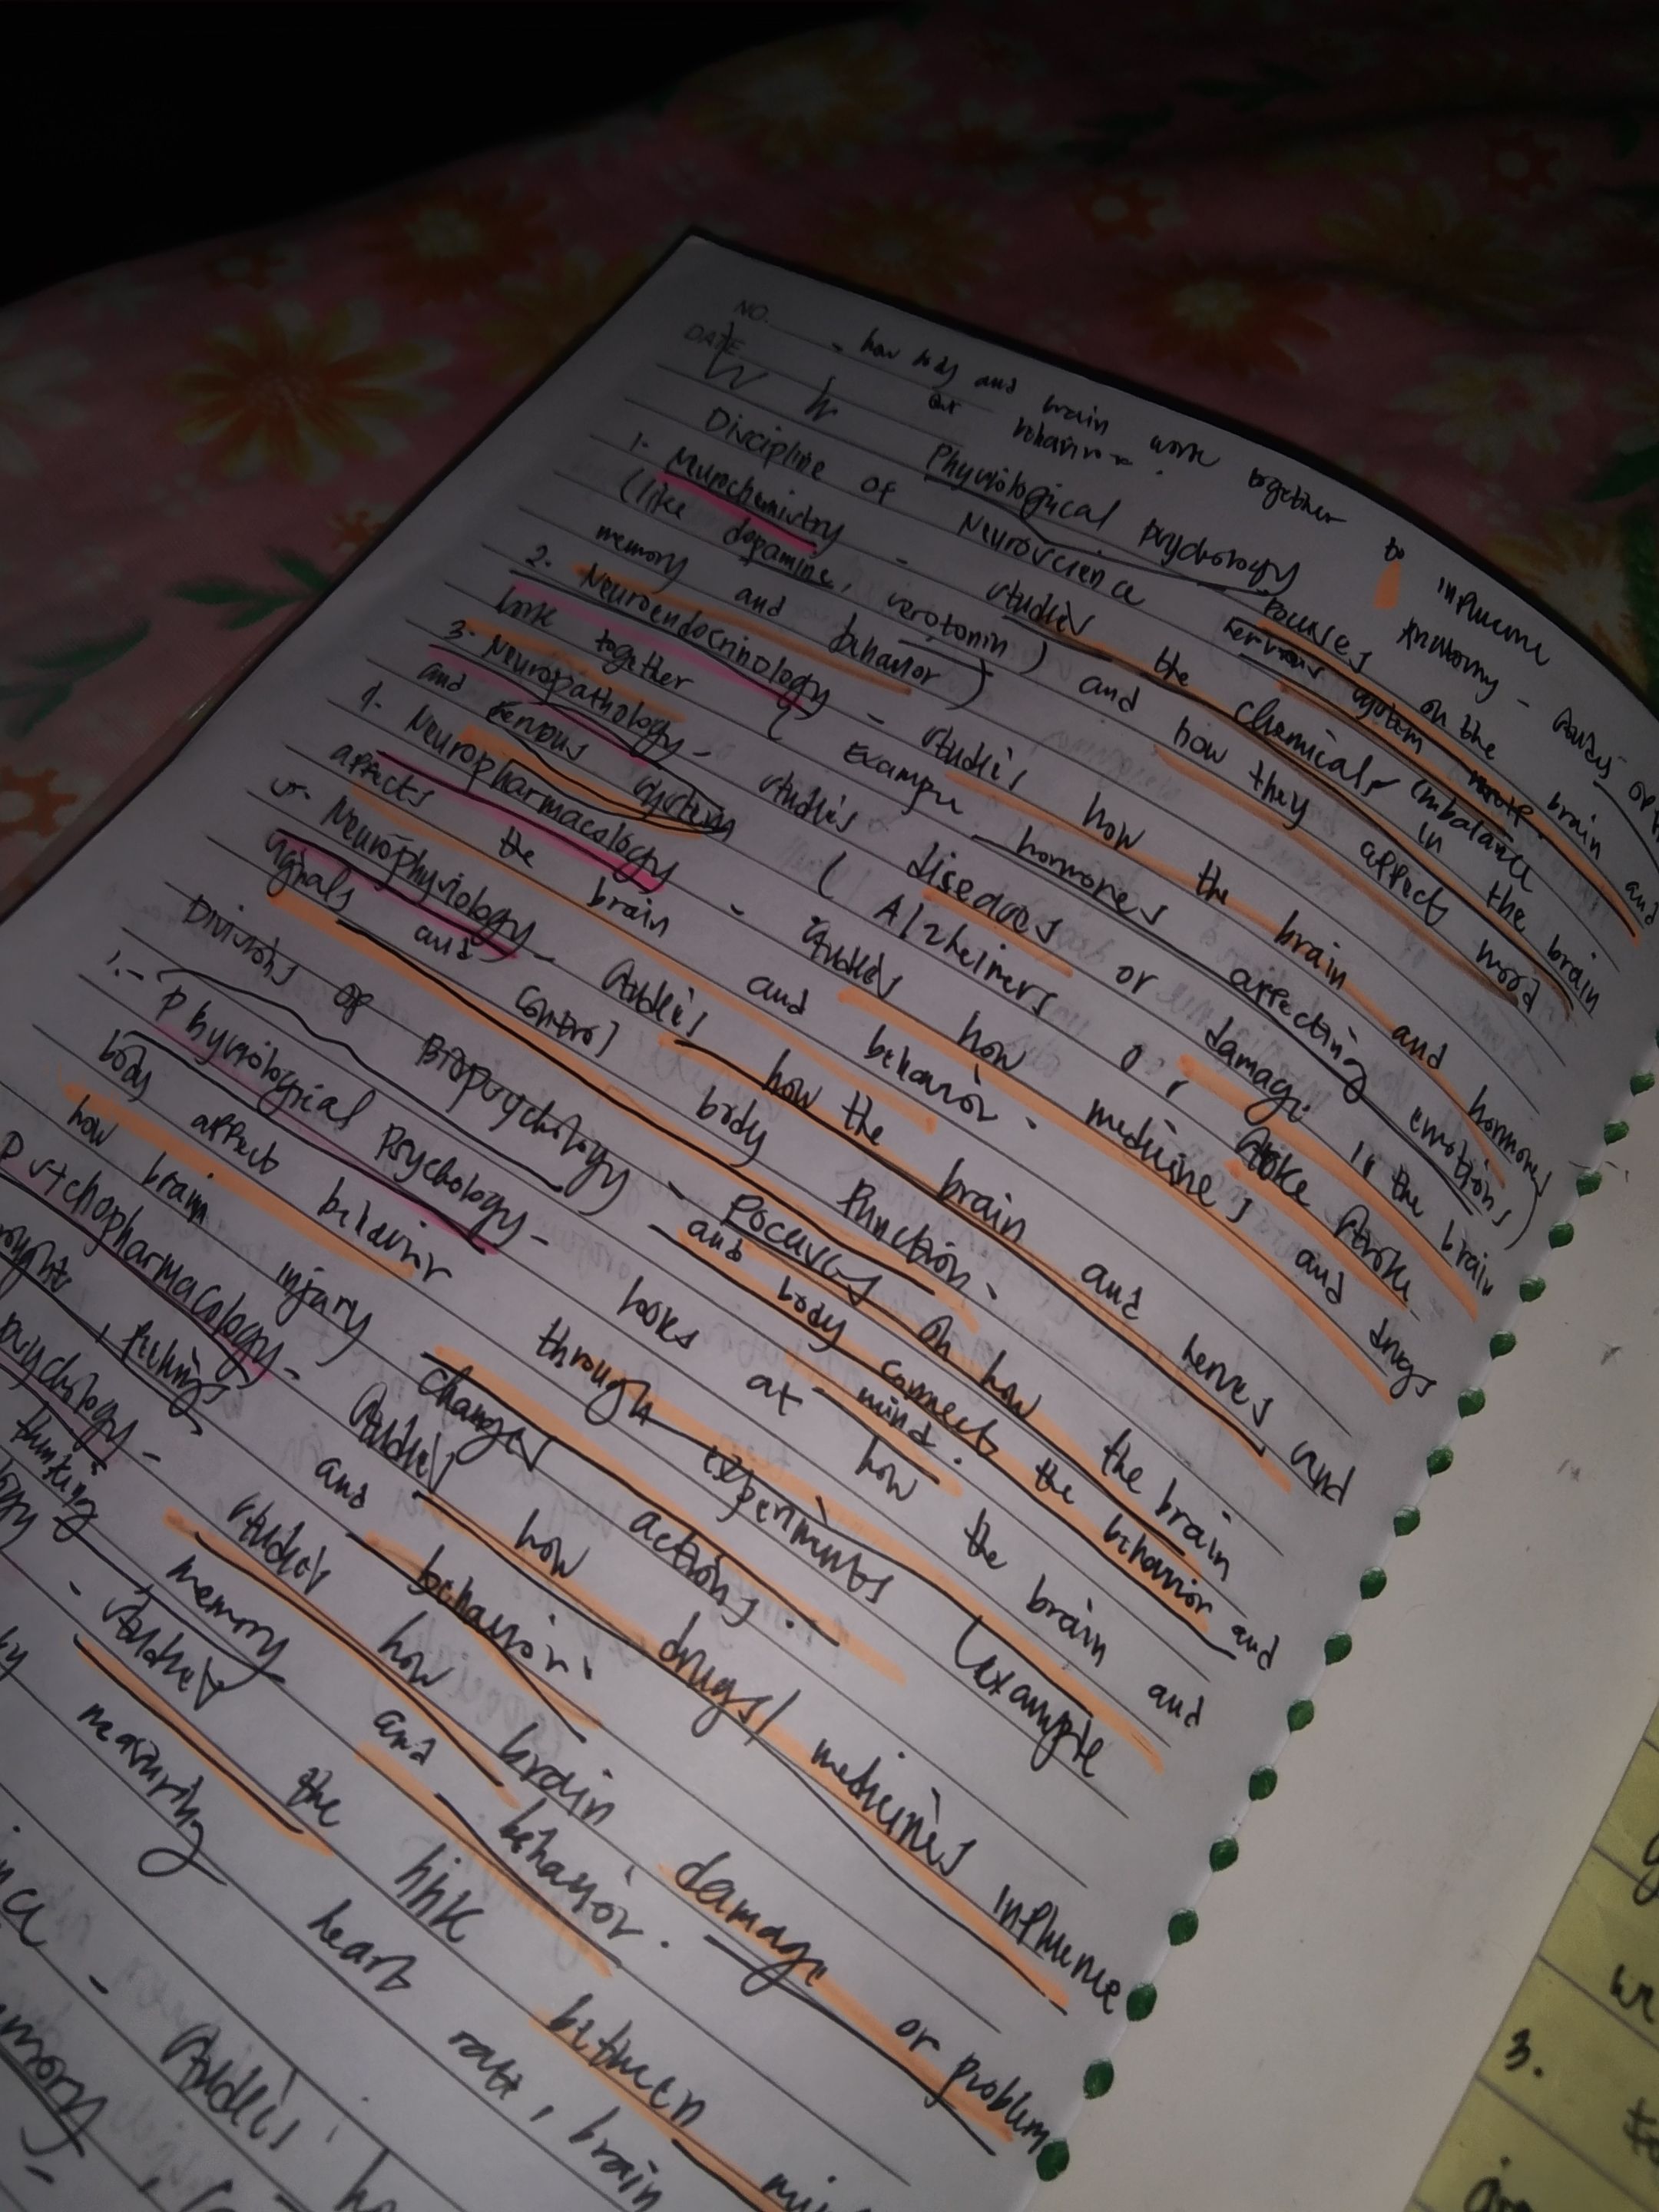 NO.
DATE
- how body and brain work together to influence
our behavior.
Physiological psychology - focuses on the brain and
nervous system
Anatomy - study of
Discipline of Neuroscience
1. Neurochemistry - studies the chemicals imbalance in the brain
(like dopamine, serotonin) and how they affect mood
memory and behavior)
2. Neuroendocrinology - studies how the brain and hormones
work together (Example hormones affecting emotions)
3. Neuropathology - studies diseases or damage in the brain
and nervous system (Alzheimers or, stroke
4. Neuropharmacology - studies how medicines and drugs
affects the brain and behavior.
5. Neurophysiology - studies how the brain and nerves and
signals and control body function.
Divisions of Biopsychology - Focuses on how the brain
and body connects the behavior and
mind.
1.- Physiological psychology - looks at how the brain and
body affect behavior through experiments (example
how brain injury changes actions.
Pstchopharmacology - studies how drugs/ medicines influence
thoughts, feelings and behavior.
psychology - studies how brain damage or problem
thinking memory and behavior.
- studies the link between
measuring heart rate, brain
- studies